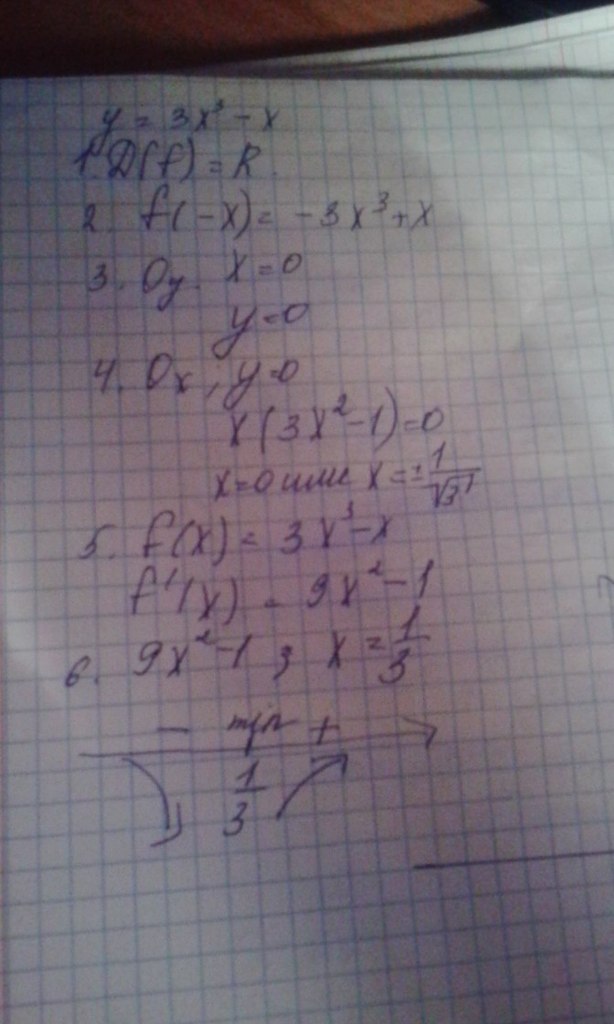 y = 3x³ - x
1. D(f) = R.
2. f(-x) = -3x³ + x
3. Oy. x = 0
y = 0
4. Ox, y=0
x(3x² - 1) = 0
x=0 или x = ± 1/√3
5. f(x) = 3x³ - x
f'(x) = 9x² - 1
6. 9x² - 1 ; x = 1/3
- min +
1/3